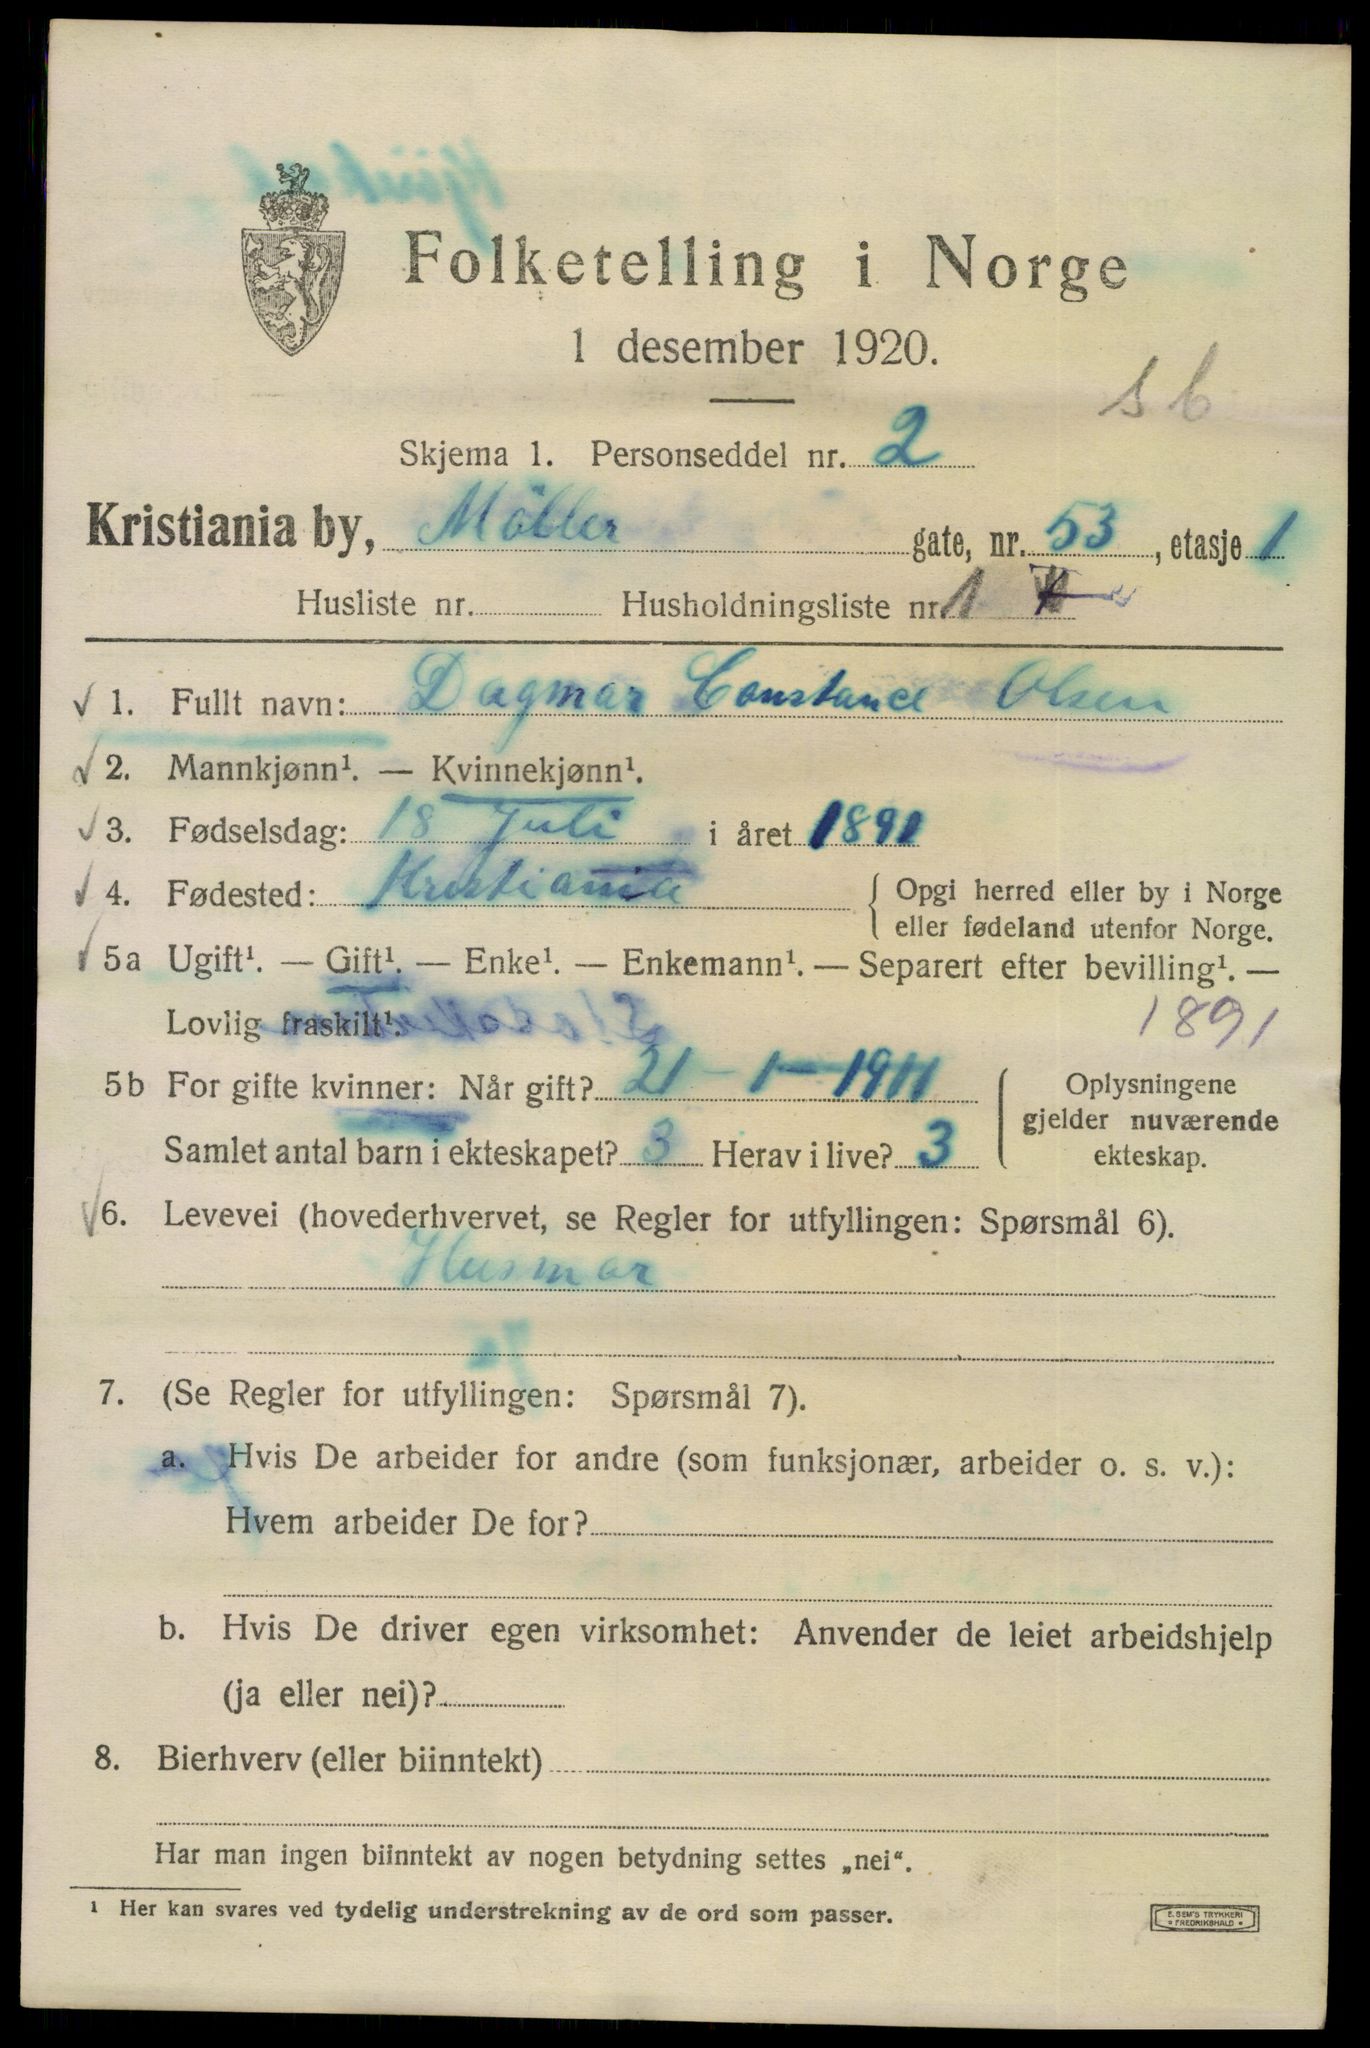 Folketelling i Norge
1 desember 1920.
s b
Skjema 1. Personseddel nr. 2
Kristiania by, Möller gate, nr. 53, etasje 1
Husliste nr. Husholdningsliste nr. 1
1. Fullt navn: Dagmar Constance Olsen
2. Mannkjønn¹. — Kvinnekjønn¹.
3. Fødselsdag: 18 Juli i året 1891
4. Fødested: Kristiania { Opgi herred eller by i Norge
eller fødeland utenfor Norge.
5a Ugift¹. — Gift¹. — Enke¹. — Enkemann¹. — Separert efter bevilling¹. —
Lovlig fraskilt¹. 1891
5b For gifte kvinner: Når gift? 21 - 1 - 1911
Samlet antal barn i ekteskapet? 3 Herav i live? 3
Oplysningene
gjelder nuværende
ekteskap.
6. Levevei (hovederhvervet, se Regler for utfyllingen: Spørsmål 6).
Husmor
7. (Se Regler for utfyllingen: Spørsmål 7).
a. Hvis De arbeider for andre (som funksjonær, arbeider o. s. v.):
Hvem arbeider De for?
b. Hvis De driver egen virksomhet: Anvender de leiet arbeidshjelp
(ja eller nei)?
8. Bierhverv (eller biinntekt)
Har man ingen biinntekt av nogen betydning settes „nei“.
¹ Her kan svares ved tydelig understrekning av de ord som passer.
E. SEM'S TRYKKERI
FREDRIKSHALD